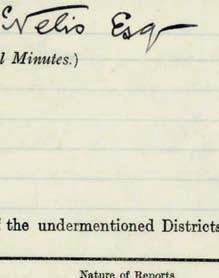 Velis Esq
l Minutes.)
the undermentioned Districts
Nature of Reports